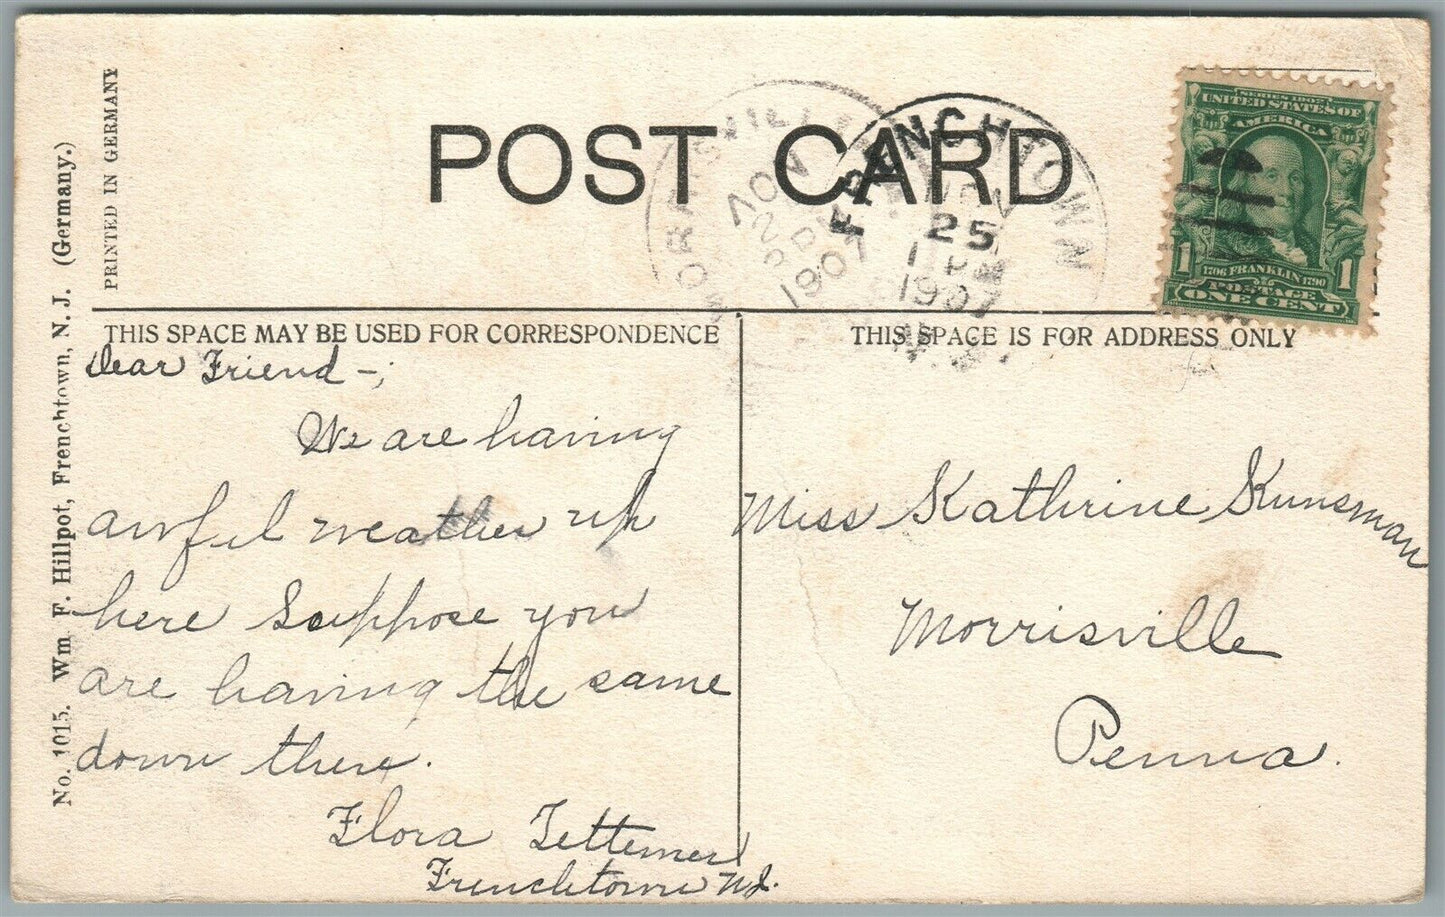 PRINTED IN GERMANY
No. 1015. Wm F. Hillpot, Frenchtown, N. J. (Germany.)
POST CARD
MORRISVILLE
NOV
1907
FRENCHTOWN
NOV
25
1907
SERIES 1902
UNITED STATES OF
AMERICA
1 1706 FRANKLIN 1790 1
POSTAGE
ONE CENT
THIS SPACE MAY BE USED FOR CORRESPONDENCE
Dear Friend -;
We are having
awful weather up
here Suppose you
are having the same
down there.
Flora Tettemer
Frenchtown N.J.
THIS SPACE IS FOR ADDRESS ONLY
Miss Kathrine Kunsman
Morrisville
Penna.